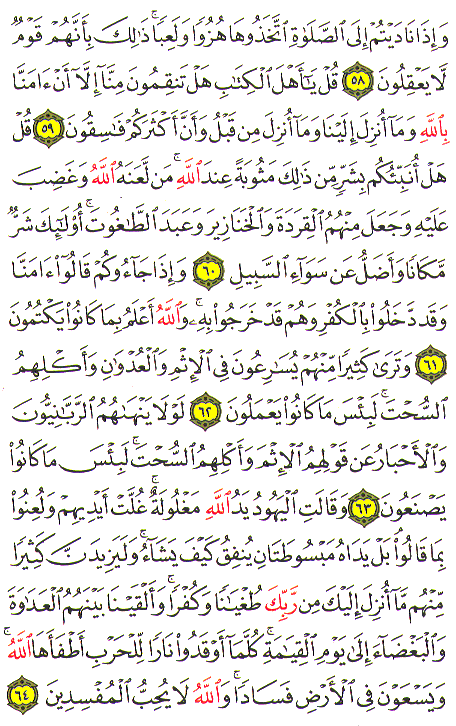 وَإِذَا نَادَيْتُمْ إِلَى ٱلصَّلَوٰةِ ٱتَّخَذُوهَا هُزُوًا وَلَعِبًا ۚ ذَٰلِكَ بِأَنَّهُمْ قَوْمٌ
لَّا يَعْقِلُونَ ٥٨ قُلْ يَٰٓأَهْلَ ٱلْكِتَٰبِ هَلْ تَنقِمُونَ مِنَّآ إِلَّآ أَنْ ءَامَنَّا
بِٱللَّهِ وَمَآ أُنزِلَ إِلَيْنَا وَمَآ أُنزِلَ مِن قَبْلُ وَأَنَّ أَكْثَرَكُمْ فَٰسِقُونَ ٥٩ قُلْ
هَلْ أُنَبِّئُكُم بِشَرٍّ مِّن ذَٰلِكَ مَثُوبَةً عِندَ ٱللَّهِ ۚ مَن لَّعَنَهُ ٱللَّهُ وَغَضِبَ
عَلَيْهِ وَجَعَلَ مِنْهُمُ ٱلْقِرَدَةَ وَٱلْخَنَازِيرَ وَعَبَدَ ٱلطَّٰغُوتَ ۚ أُو۟لَٰٓئِكَ شَرٌّ
مَّكَانًا وَأَضَلُّ عَن سَوَآءِ ٱلسَّبِيلِ ٦٠ وَإِذَا جَآءُوكُمْ قَالُوٓا۟ ءَامَنَّا
وَقَد دَّخَلُوا۟ بِٱلْكُفْرِ وَهُمْ قَدْ خَرَجُوا۟ بِهِۦ ۚ وَٱللَّهُ أَعْلَمُ بِمَا كَانُوا۟ يَكْتُمُونَ
٦١ وَتَرَىٰ كَثِيرًا مِّنْهُمْ يُسَٰرِعُونَ فِى ٱلْإِثْمِ وَٱلْعُدْوَٰنِ وَأَكْلِهِمُ
ٱلسُّحْتَ ۚ لَبِئْسَ مَا كَانُوا۟ يَعْمَلُونَ ٦٢ لَوْلَا يَنْهَىٰهُمُ ٱلرَّبَّٰنِيُّونَ
وَٱلْأَحْبَارُ عَن قَوْلِهِمُ ٱلْإِثْمَ وَأَكْلِهِمُ ٱلسُّحْتَ ۚ لَبِئْسَ مَا كَانُوا۟
يَصْنَعُونَ ٦٣ وَقَالَتِ ٱلْيَهُودُ يَدُ ٱللَّهِ مَغْلُولَةٌ ۚ غُلَّتْ أَيْدِيهِمْ وَلُعِنُوا۟
بِمَا قَالُوا۟ ۘ بَلْ يَدَاهُ مَبْسُوطَتَانِ يُنفِقُ كَيْفَ يَشَآءُ ۚ وَلَيَزِيدَنَّ كَثِيرًا
مِّنْهُم مَّآ أُنزِلَ إِلَيْكَ مِن رَّبِّكَ طُغْيَٰنًا وَكُفْرًا ۚ وَأَلْقَيْنَا بَيْنَهُمُ ٱلْعَدَٰوَةَ
وَٱلْبَغْضَآءَ إِلَىٰ يَوْمِ ٱلْقِيَٰمَةِ ۚ كُلَّمَآ أَوْقَدُوا۟ نَارًا لِّلْحَرْبِ أَطْفَأَهَا ٱللَّهُ ۚ
وَيَسْعَوْنَ فِى ٱلْأَرْضِ فَسَادًا ۚ وَٱللَّهُ لَا يُحِبُّ ٱلْمُفْسِدِينَ ٦٤